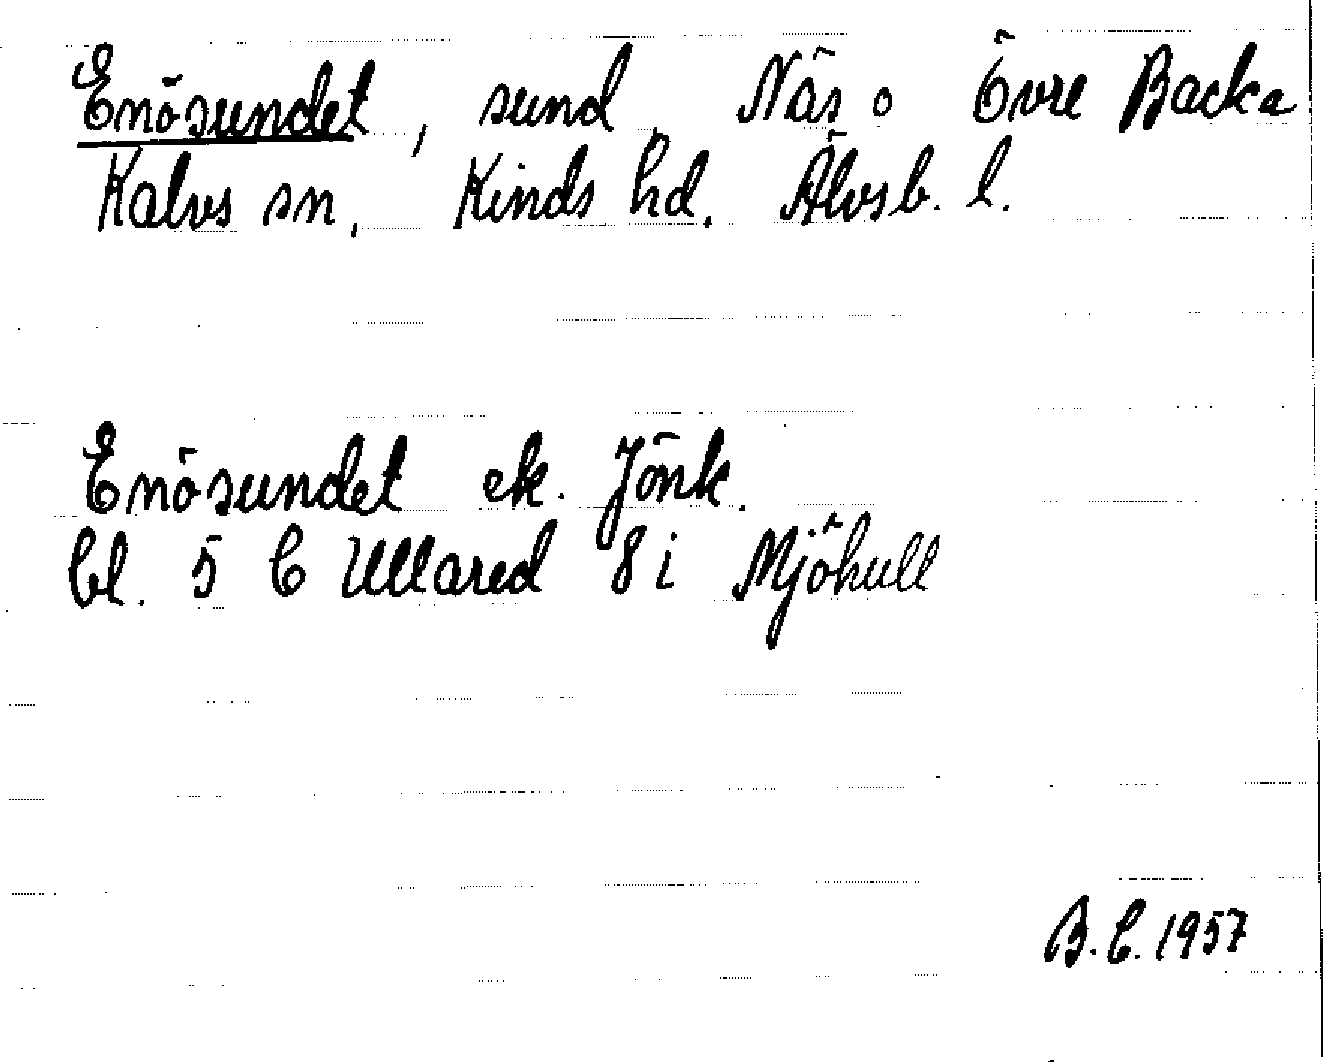 Enösundet, sund, Näs o Övre Backa
Kalvs sn, Kinds hd. Älvsb. l.
Enösundet ek. Jönk.
bl. 5 C Ullared 8 i Mjöhull
B.C. 1957